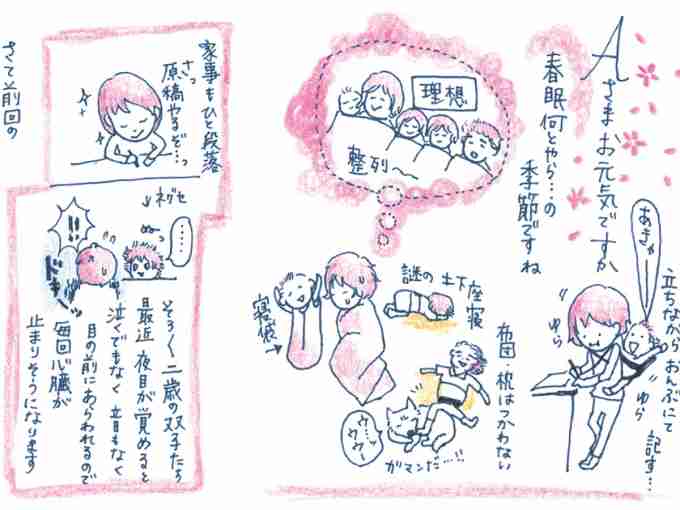 Aさまお元気ですか
春眠何とやら…の
季節ですね
理想
整列〜
あきゃー
立ちながら おんぶにて
記す…
ゆら
ゆら
謎の土下座寝
寝袋→
布団・枕はつかわない
ウ…ッ
ウウー
ガマンだ…!!
家事もひと段落
さっ
原稿やるぞ…っ
↓ネグセ
ぬっ
……
!!
ドキーッ
そろそろ二歳の双子たち
最近 夜目が覚めると
泣くでもなく 音もなく
目の前にあらわれるので
毎回心臓が
止まりそうになります
さて前回の